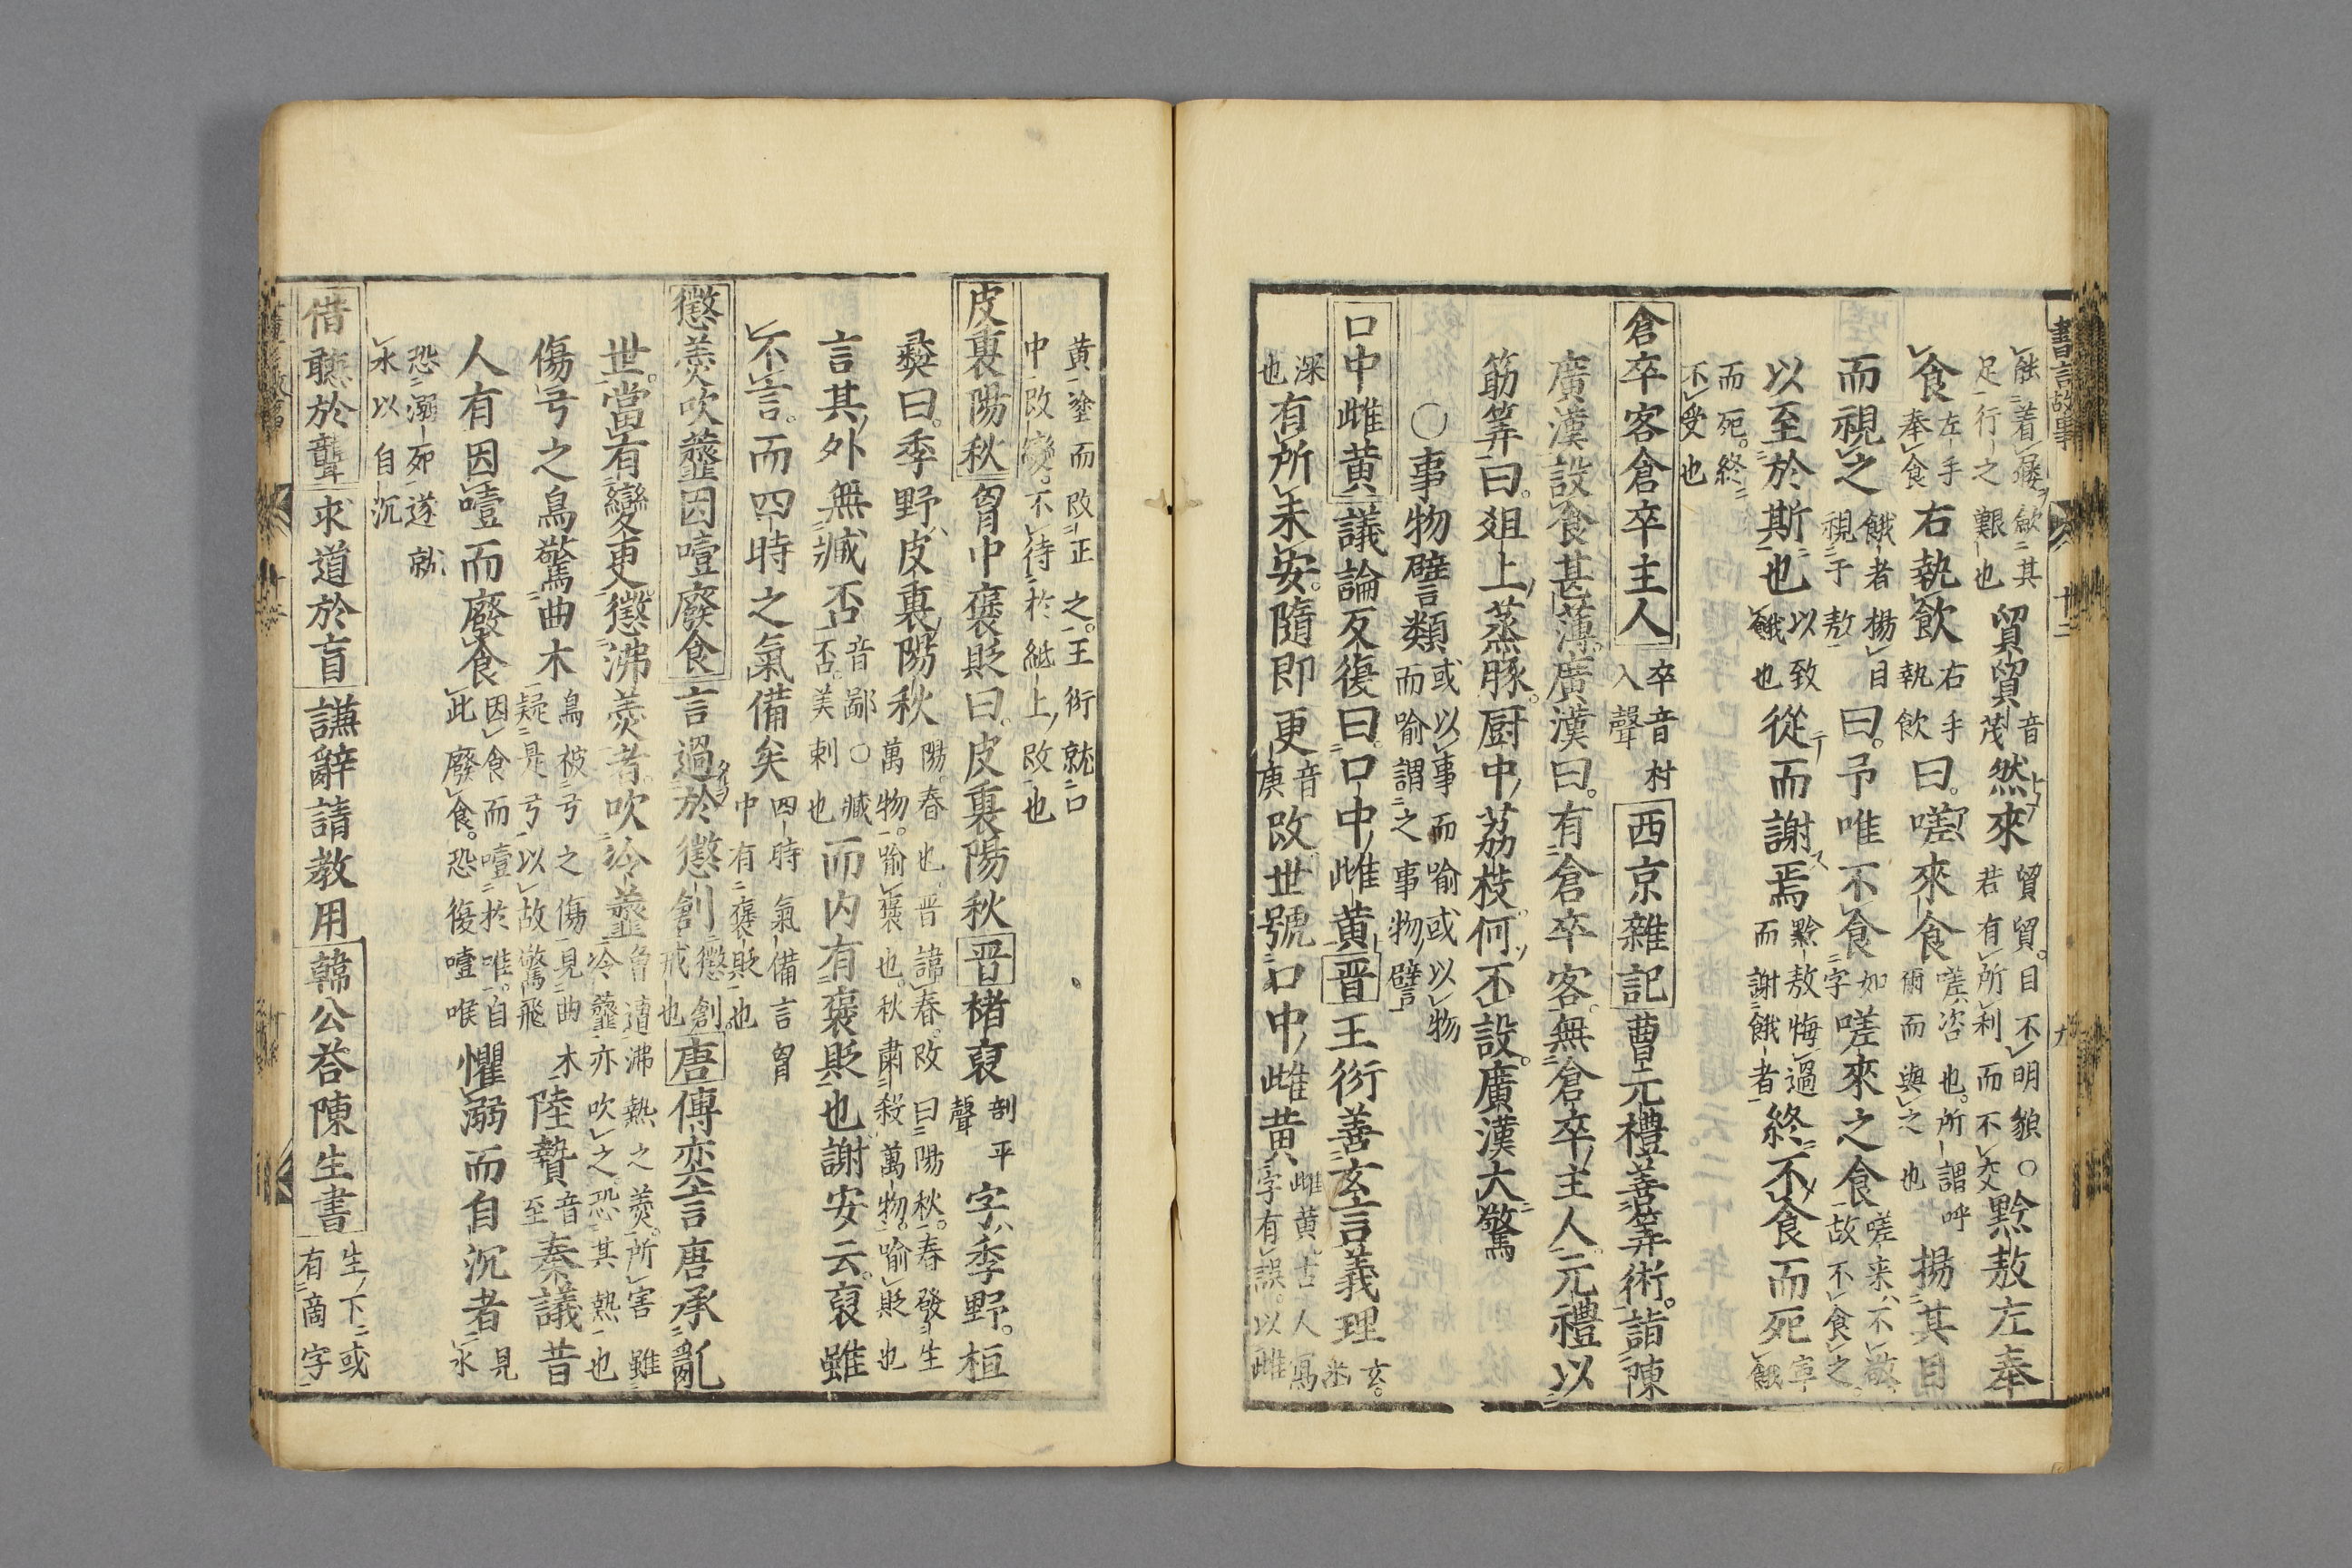 書言故事
䏻着屨歛其
足行之艱也
貿貿音茂然來貿貿目不明貌○若有所利而不交黔敖左奉
食左手奉食右執飲右手執飲曰嗟來食嗟咨也所謂呼爾而與之也揚其目
而視之餓者揚目視于敖曰予唯不食如字嗟來之食嗟来不敬故不食之
以至於斯也以致餓也從而謝焉黔敖悔過而謝餓者終不食而死寧餓
而死終不受也
倉卒客倉卒主人卒音村入聲西京雜記曹元禮善筭術詣陳
廣漢設食甚薄廣漢曰有倉卒客無倉卒主人元禮以
筯筭曰俎上蒸豚厨中荔枝何不設廣漢大驚
○事物譬類或以事而喻或以物而喻謂之事物譬
口中雌黄議論反復曰口中雌黄晋王衍善玄言義理玄
深也有所未安隨即更音庚改世號口中雌黄雌黄古人寫字有誤以雌
黄塗而改正之王衍就口
中改變不待於紙上改也
皮裏陽秋胷中褒貶曰皮裏陽秋晋楮裒剖平聲字季野桓
彛曰季野皮裏陽秋陽春也晋諱春改曰陽秋春發生萬物喻褒也秋肅殺萬物喻貶也
言其外無臧否音鄙○臧否美刺也而内有褒貶也謝安云裒雖
不言而四時之氣備矣四時氣備言胷中有褒貶也
懲羮吹虀因噎廢食言過於懲創懲創戒也唐傅奕言唐承亂
世當有變更懲沸羮者吹冷虀曾遭沸熱之羮所害雖冷虀亦吹之恐其熱也
傷弓之鳥驚曲木鳥被弓之傷見曲木疑是弓以故驚飛陸贄音至奏議昔
人有因噎而廢食因食而噎於喉自此廢食恐復噎喉懼溺而自沉者見水
恐溺死遂就
水以自沉
借聽於聾求道於盲謙辭請教用韓公荅陳生書生下或有商字